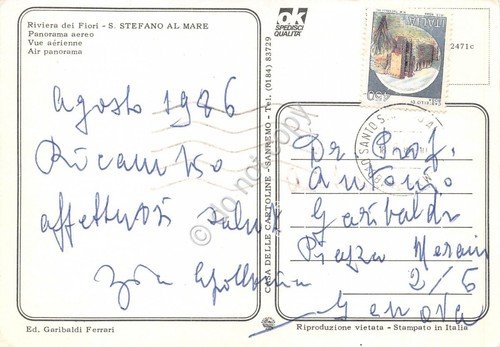 Riviera dei Fiori - S. STEFANO AL MARE
Panorama aereo
Vue aérienne
Air panorama
ok
SPEDISCI
QUALITA'
ITALIA
450
2471c
CASA DELLE CARTOLINE - SANREMO - Tel. (0184) 83729
agosto 1986
Ricambio
affettuosi saluti
zia
Dr Prof.
Antonio
Garibaldi
Piazza Merani
2/6
Genova
do not copy
Ed. Garibaldi Ferrari
Riproduzione vietata - Stampato in Italia